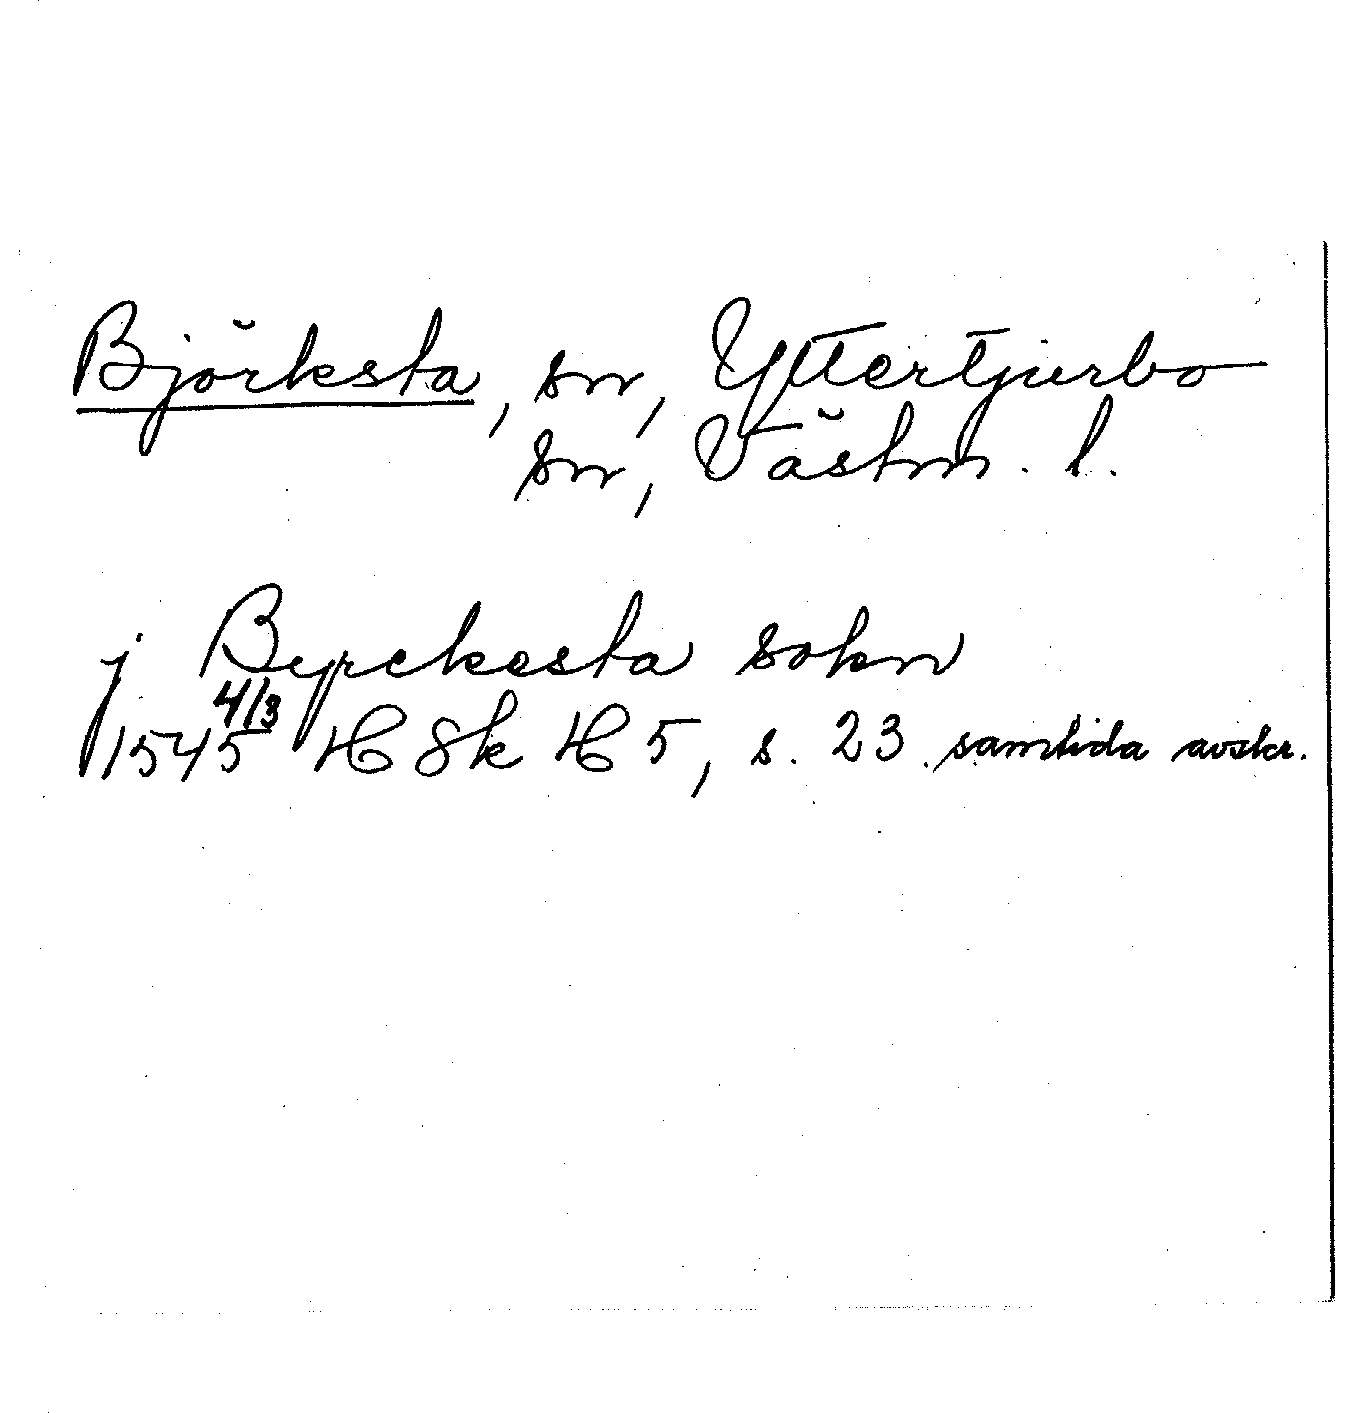 Björksta, sn, Yttertjurbo
sn, Västm. l.
j Byrckesta sokn
1545 4/3 H Sk H 5, s. 23. samtida avskr.